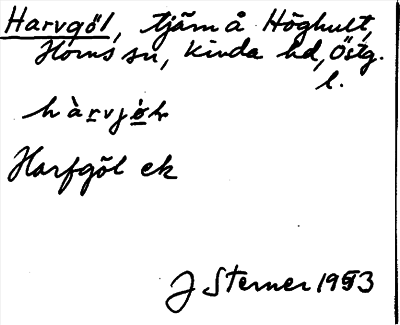 Harvgöl, tjärn å Höghult,
Horns sn, Kinda hd, Östg.
l.
hàrvjö̀l
Harfgöl ek
J Sterner 1953